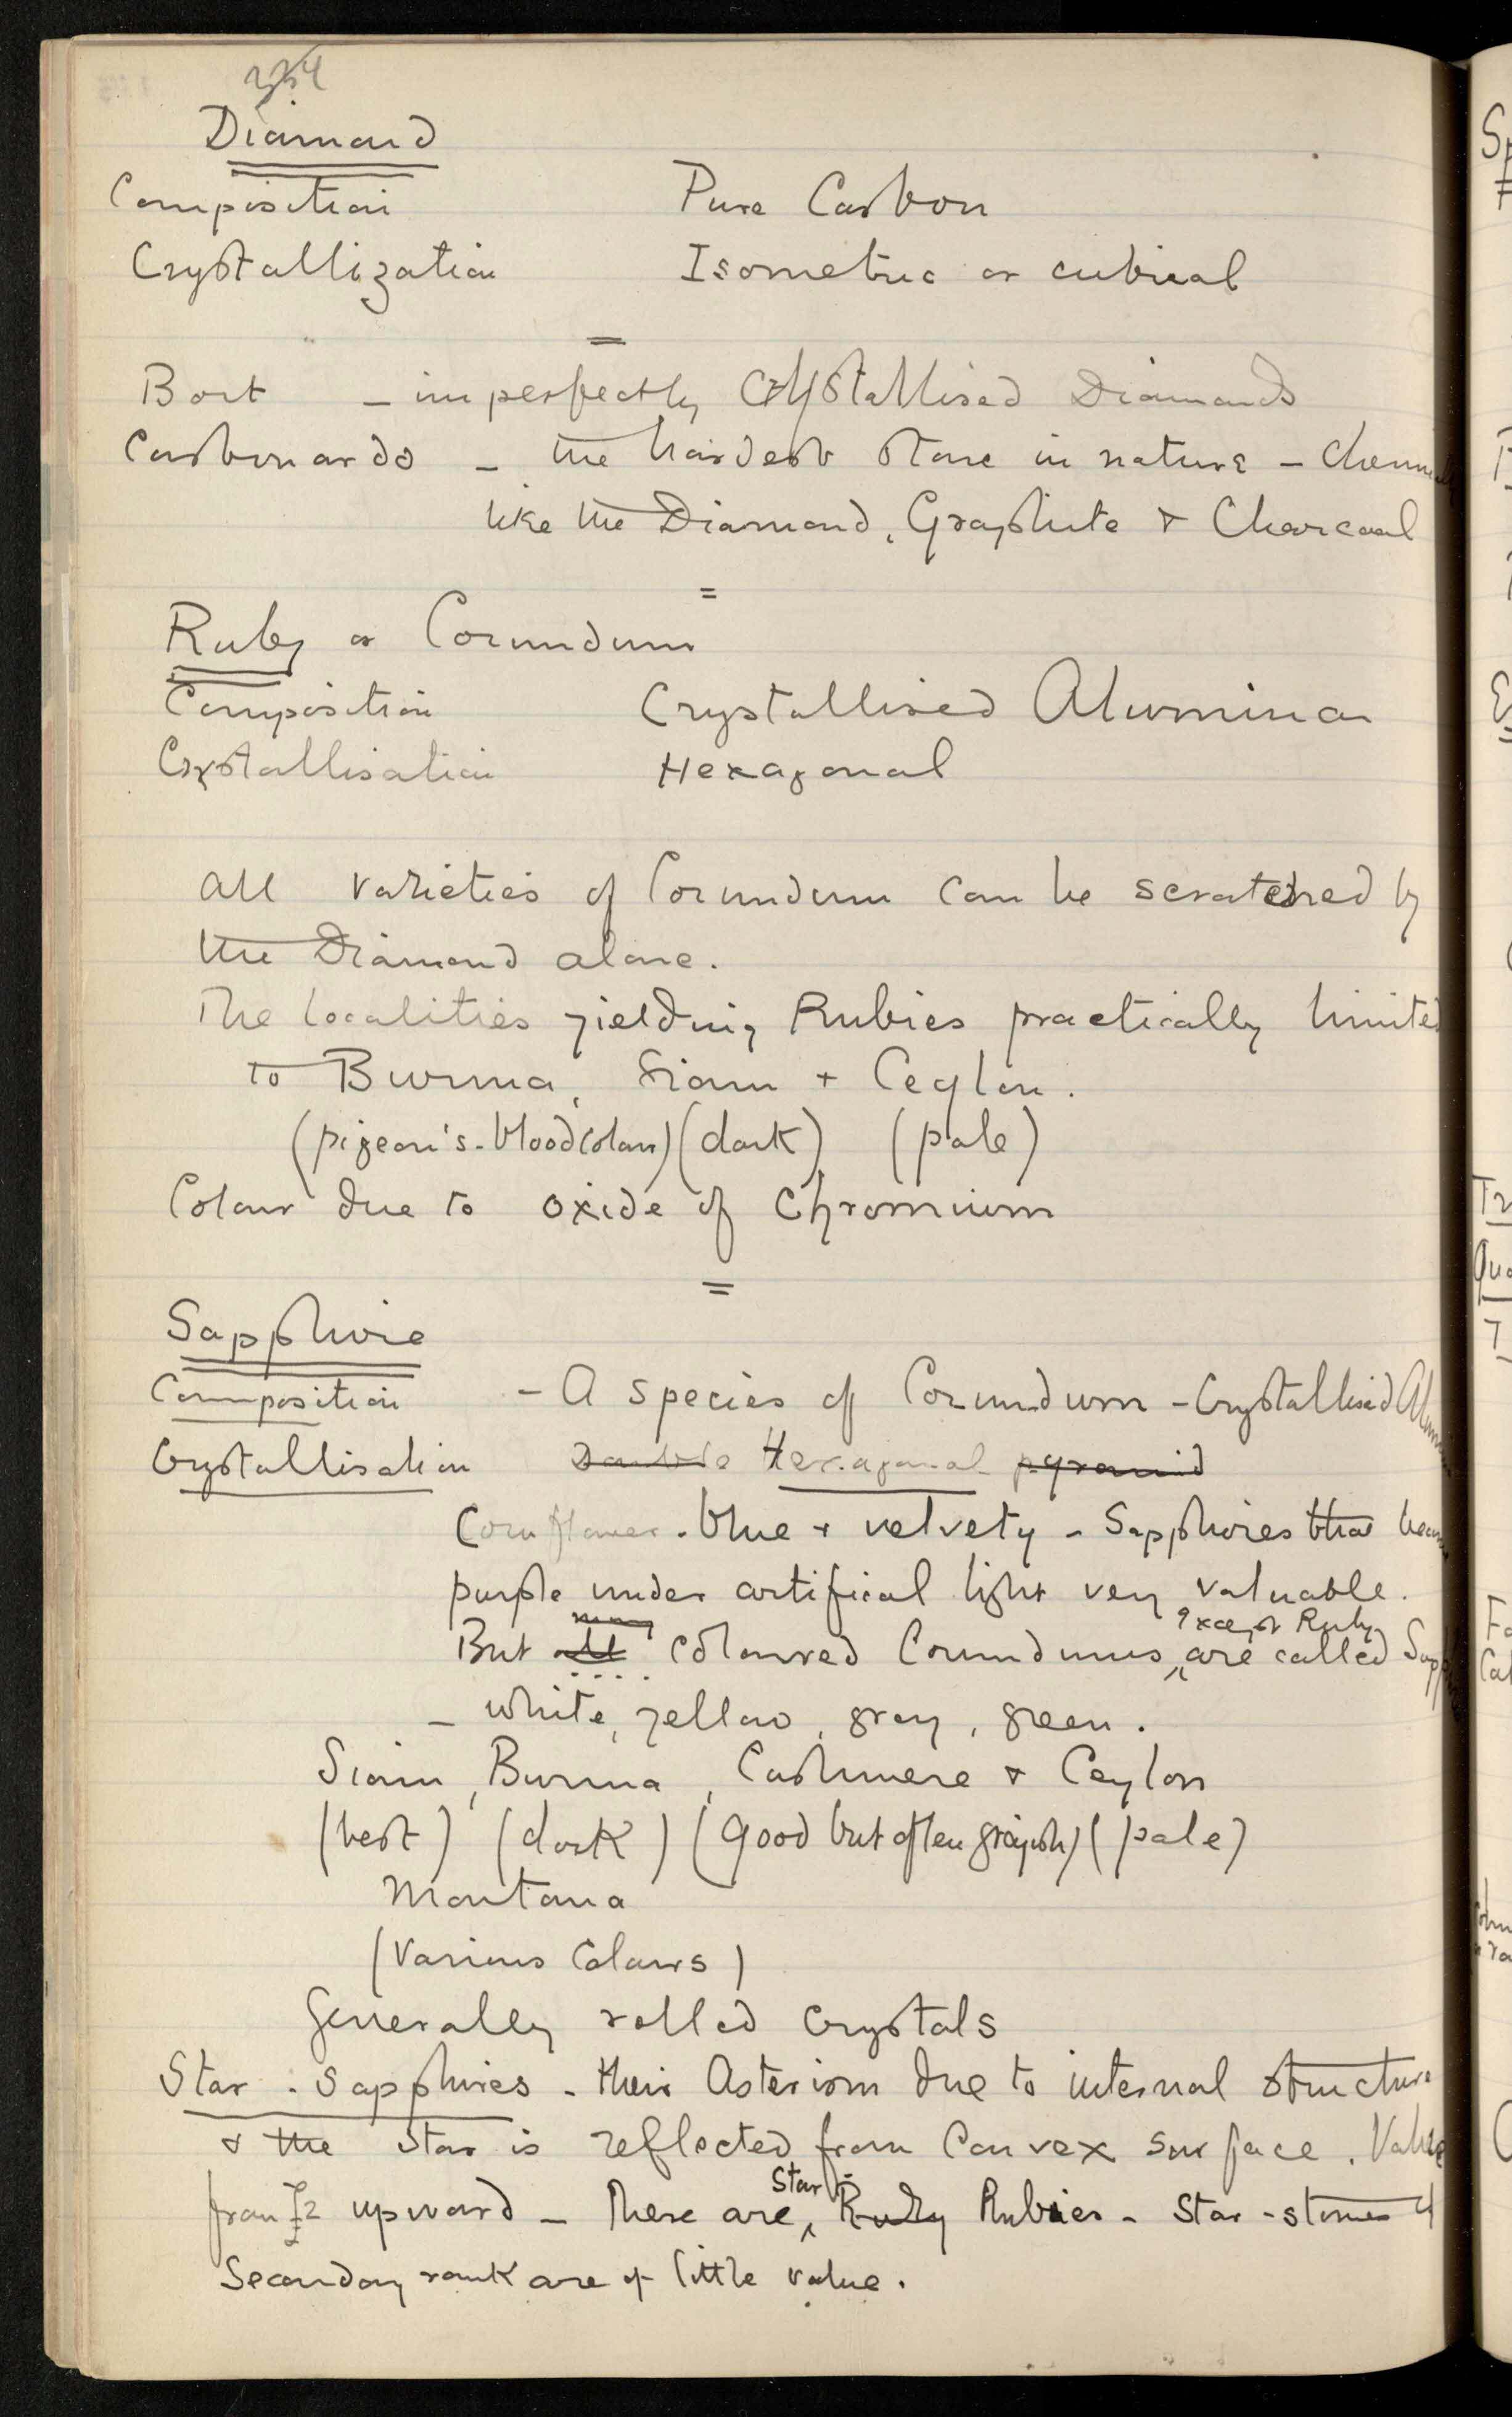 Diamond
Composition Pure Carbon
Crystallization Isometric or cubical
=
Bort – imperfectly Crystallised Diamonds
Carbonardo – the hardest stone in nature –
like the Diamond, Graphite & Charcoal
=
Ruby or Corundum
Composition Crystallised Alumina
Crystallisation Hexagonal
All varieties of Corundum can be scratched by
the Diamond alone.
The localities yielding Rubies practically limited
to Burma, Siam + Ceylon.
(pigeon's-blood Colour) (dark) (pale)
Colour due to oxide of Chromium
=
Sapphire
Composition – A species of Corundum – Crystallised
Crystallisation Double Hexagonal pyramid
Cornflower-blue + velvety – Sapphires that
purple under artifical light very valuable.
many except Ruby
But all coloured Corundums are called
– white, yellow, gray, green.
Siam, Burma, Cashmere & Ceylon
(best) (dark) (good but often grayish) (pale)
Montana
(Various Colours)
Generally rolled crystals
Star-Sapphires – their Asterism due to internal structure
& the star is reflected from Convex surface. Value
Star-
from £2 upward – There are Ruby Rubies – Star-stones of
Secondary rank are of little value.